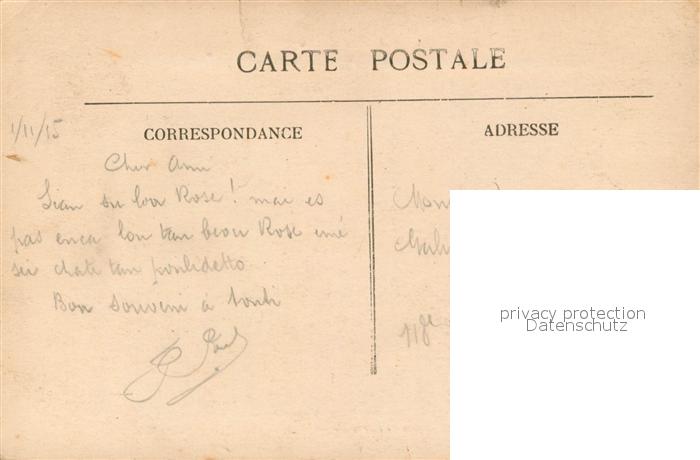 CARTE POSTALE
1/11/15
CORRESPONDANCE
ADRESSE
Cher Ami
Sian su lou Rose ! mai es
pas enca lou tan beou Rose emé
sei chate tan poulidetto
Bon Souveni à touti
Paul
privacy protection
Datenschutz